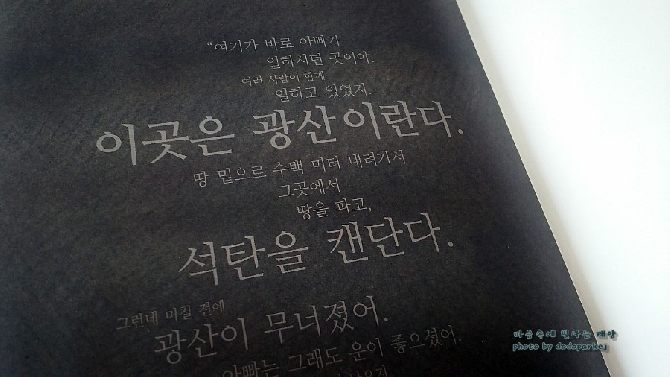 "여기가 바로 아빠가
일하시던 곳이야.
여러 사람이 함께
일하고 있었지.
이곳은 광산이란다.
땅 밑으로 수백 미터 내려가서
그곳에서
땅을 파고,
석탄을 캔단다.
그런데 며칠 전에
광산이 무너졌어.
아빠는 그래도 운이 좋으셨어.
마음속에 피라는
photo by dodoparties